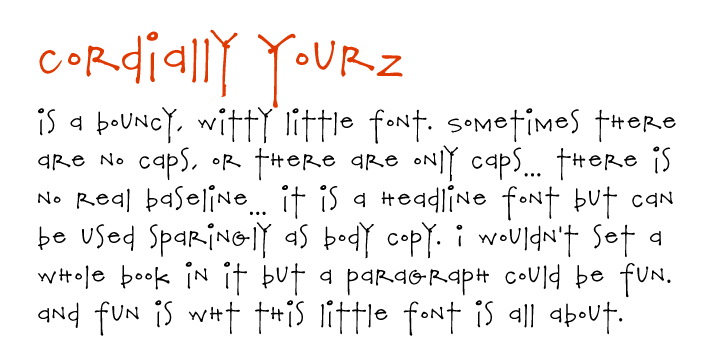 cordially yourz
is a bouncy, witty little font. sometimes there
are no caps, or there are only caps... there is
no real baseline... it is a headline font but can
be used sparingly as body copy. i wouldn't set a
whole book in it but a paragraph could be fun.
and fun is wht this little font is all about.